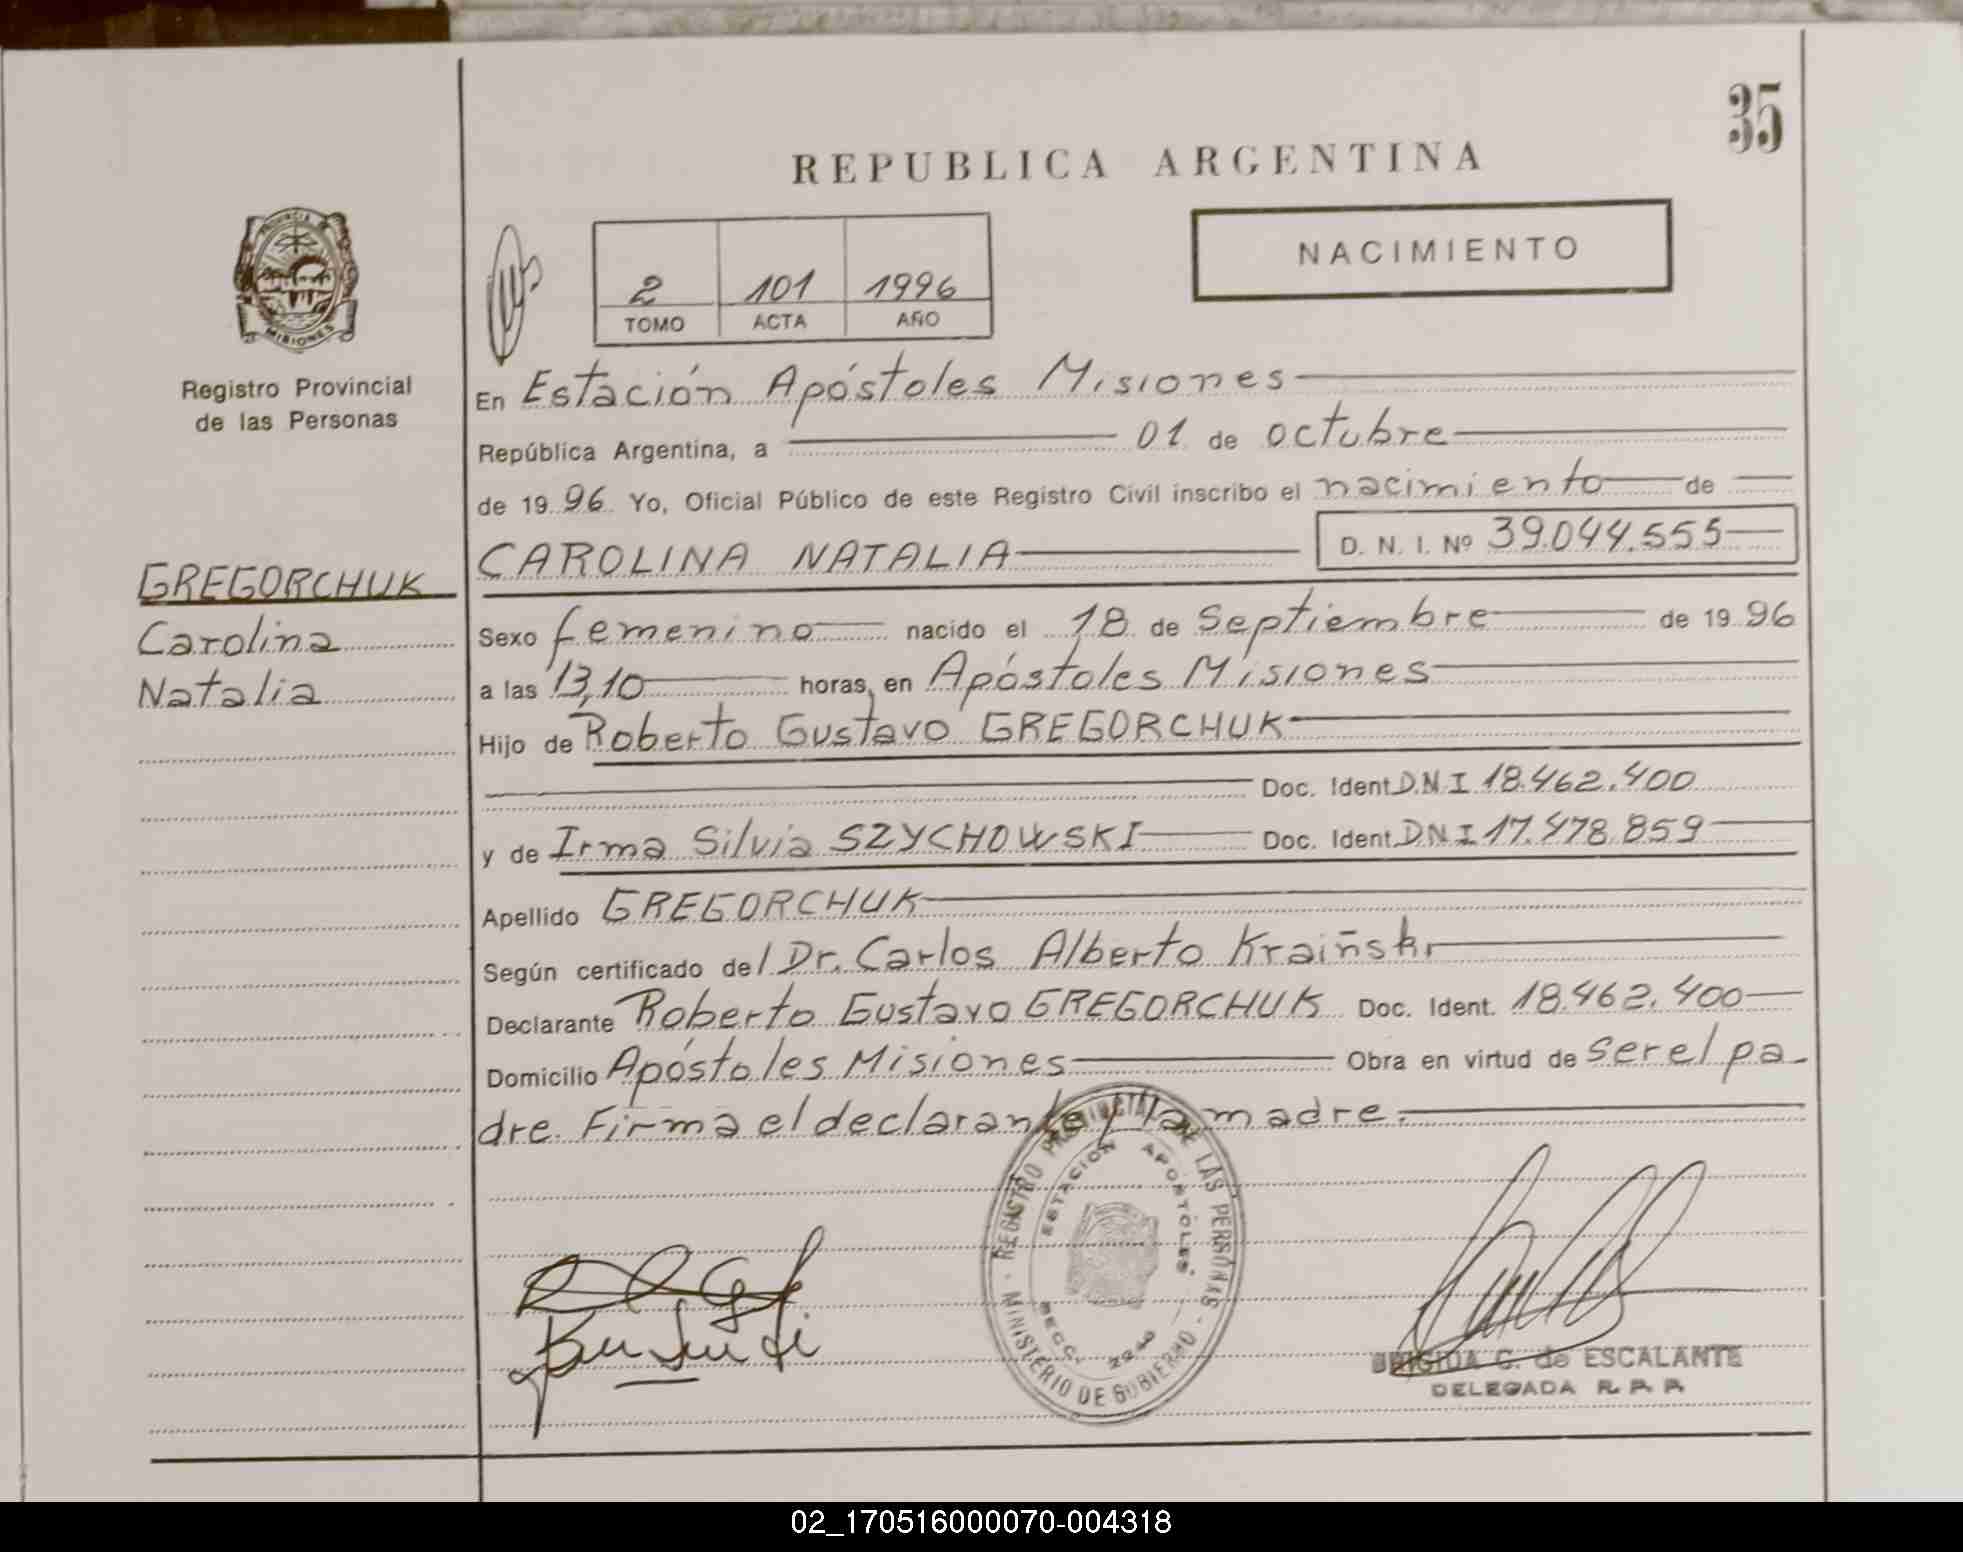 35
REPUBLICA ARGENTINA
PROVINCIA DE
MISIONES
Registro Provincial
de las Personas
2 101 1996
TOMO ACTA AÑO
NACIMIENTO
En Estación Apóstoles Misiones
República Argentina, a 01 de octubre
de 1996 Yo, Oficial Público de este Registro Civil inscribo el nacimiento de
CAROLINA NATALIA D. N. I. Nº 39.044.555
GREGORCHUK
Carolina
Natalia
Sexo femenino nacido el 18 de Septiembre de 1996
a las 13,10 horas, en Apóstoles Misiones
Hijo de Roberto Gustavo GREGORCHUK
Doc. Ident D.N.I 18.462.400
y de Irma Silvia SZYCHOWSKI Doc. Ident D.N.I 17.478.859
Apellido GREGORCHUK
Según certificado del Dr. Carlos Alberto Kraiñski
Declarante Roberto Gustavo GREGORCHUK Doc. Ident. 18.462.400
Domicilio Apóstoles Misiones Obra en virtud de ser el pa-
dre. Firma el declarante y la madre.
REGISTRO PROVINCIAL DE LAS PERSONAS
MINISTERIO DE GOBIERNO
ESTACION APOSTOLES
SECC.
BRIGIDA C. de ESCALANTE
DELEGADA R. P. P.
02_170516000070-004318